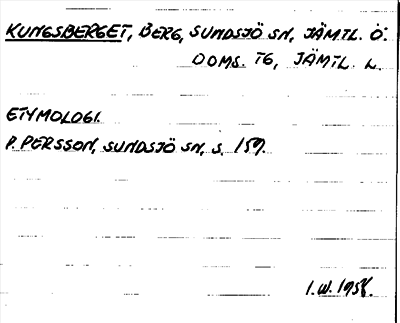 KUNGSBERGET, BERG, SUNDSJÖ SN, JÄMTL. Ö.
DOMS. TG, JÄMTL. L.
ETYMOLOGI.
P. PERSSON, SUNDSJÖ SN, S. 159.
I.W. 1958.